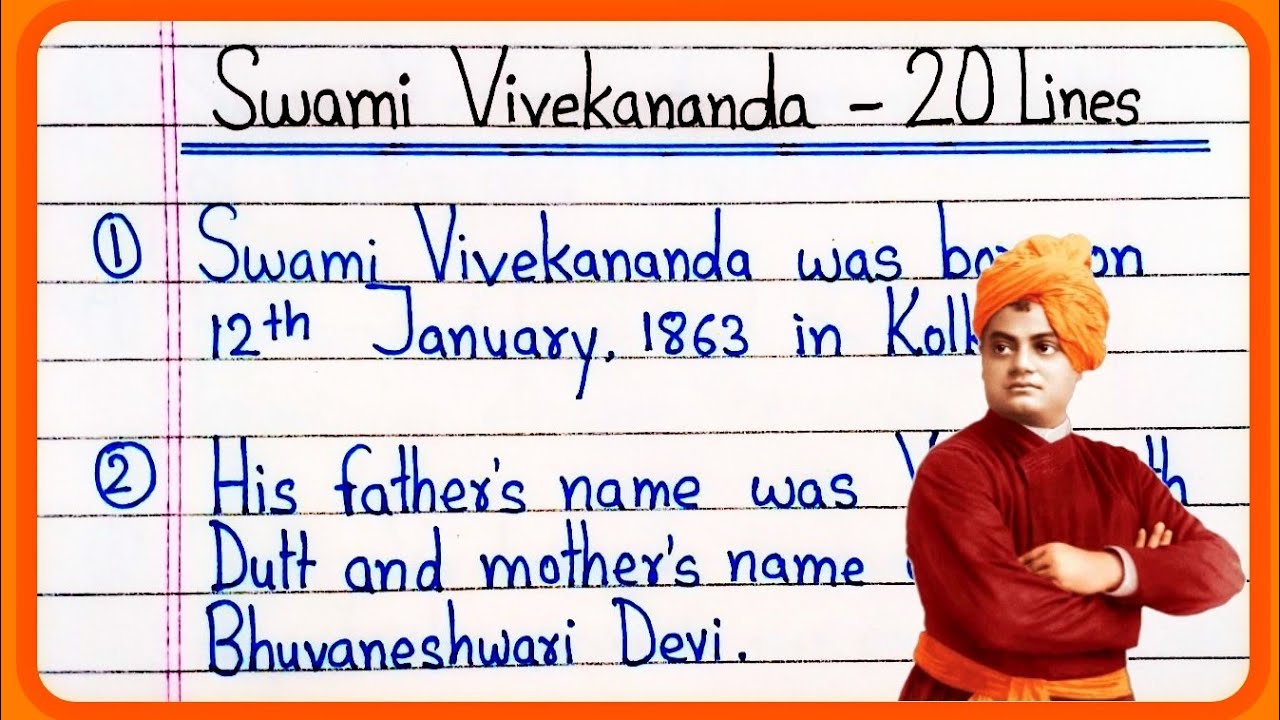 Swami Vivekananda - 20 Lines
① Swami Vivekananda was on
12th January, 1863 in
② His father's name was
Dutt and mother's name
Bhuvaneshwari Devi.